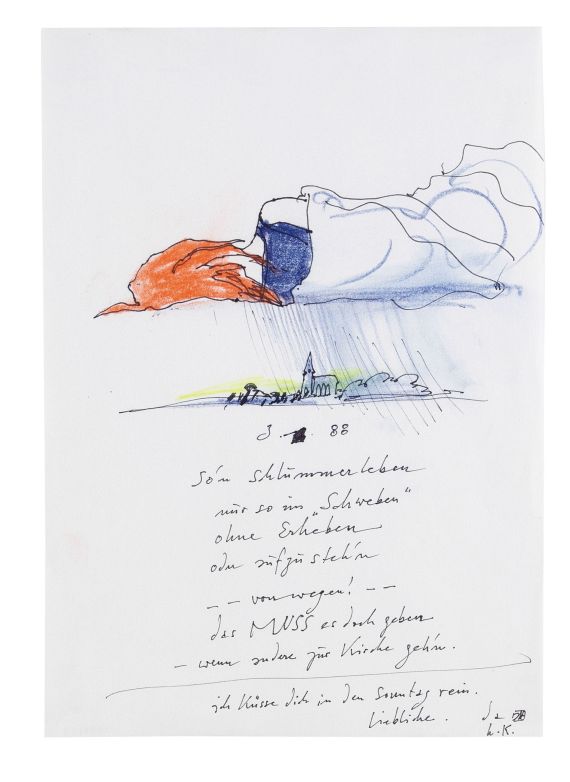 3. 88
so'n schlummerleben
nur so im „Schweben“
ohne Erheben
oder aufzusteh'n
— — von wegen! — —
das MUSS es doch geben
– wenn andere zur Kirche geh'n.
ich küsse dich in den Sonntag rein.
Liebliche.
h.K.